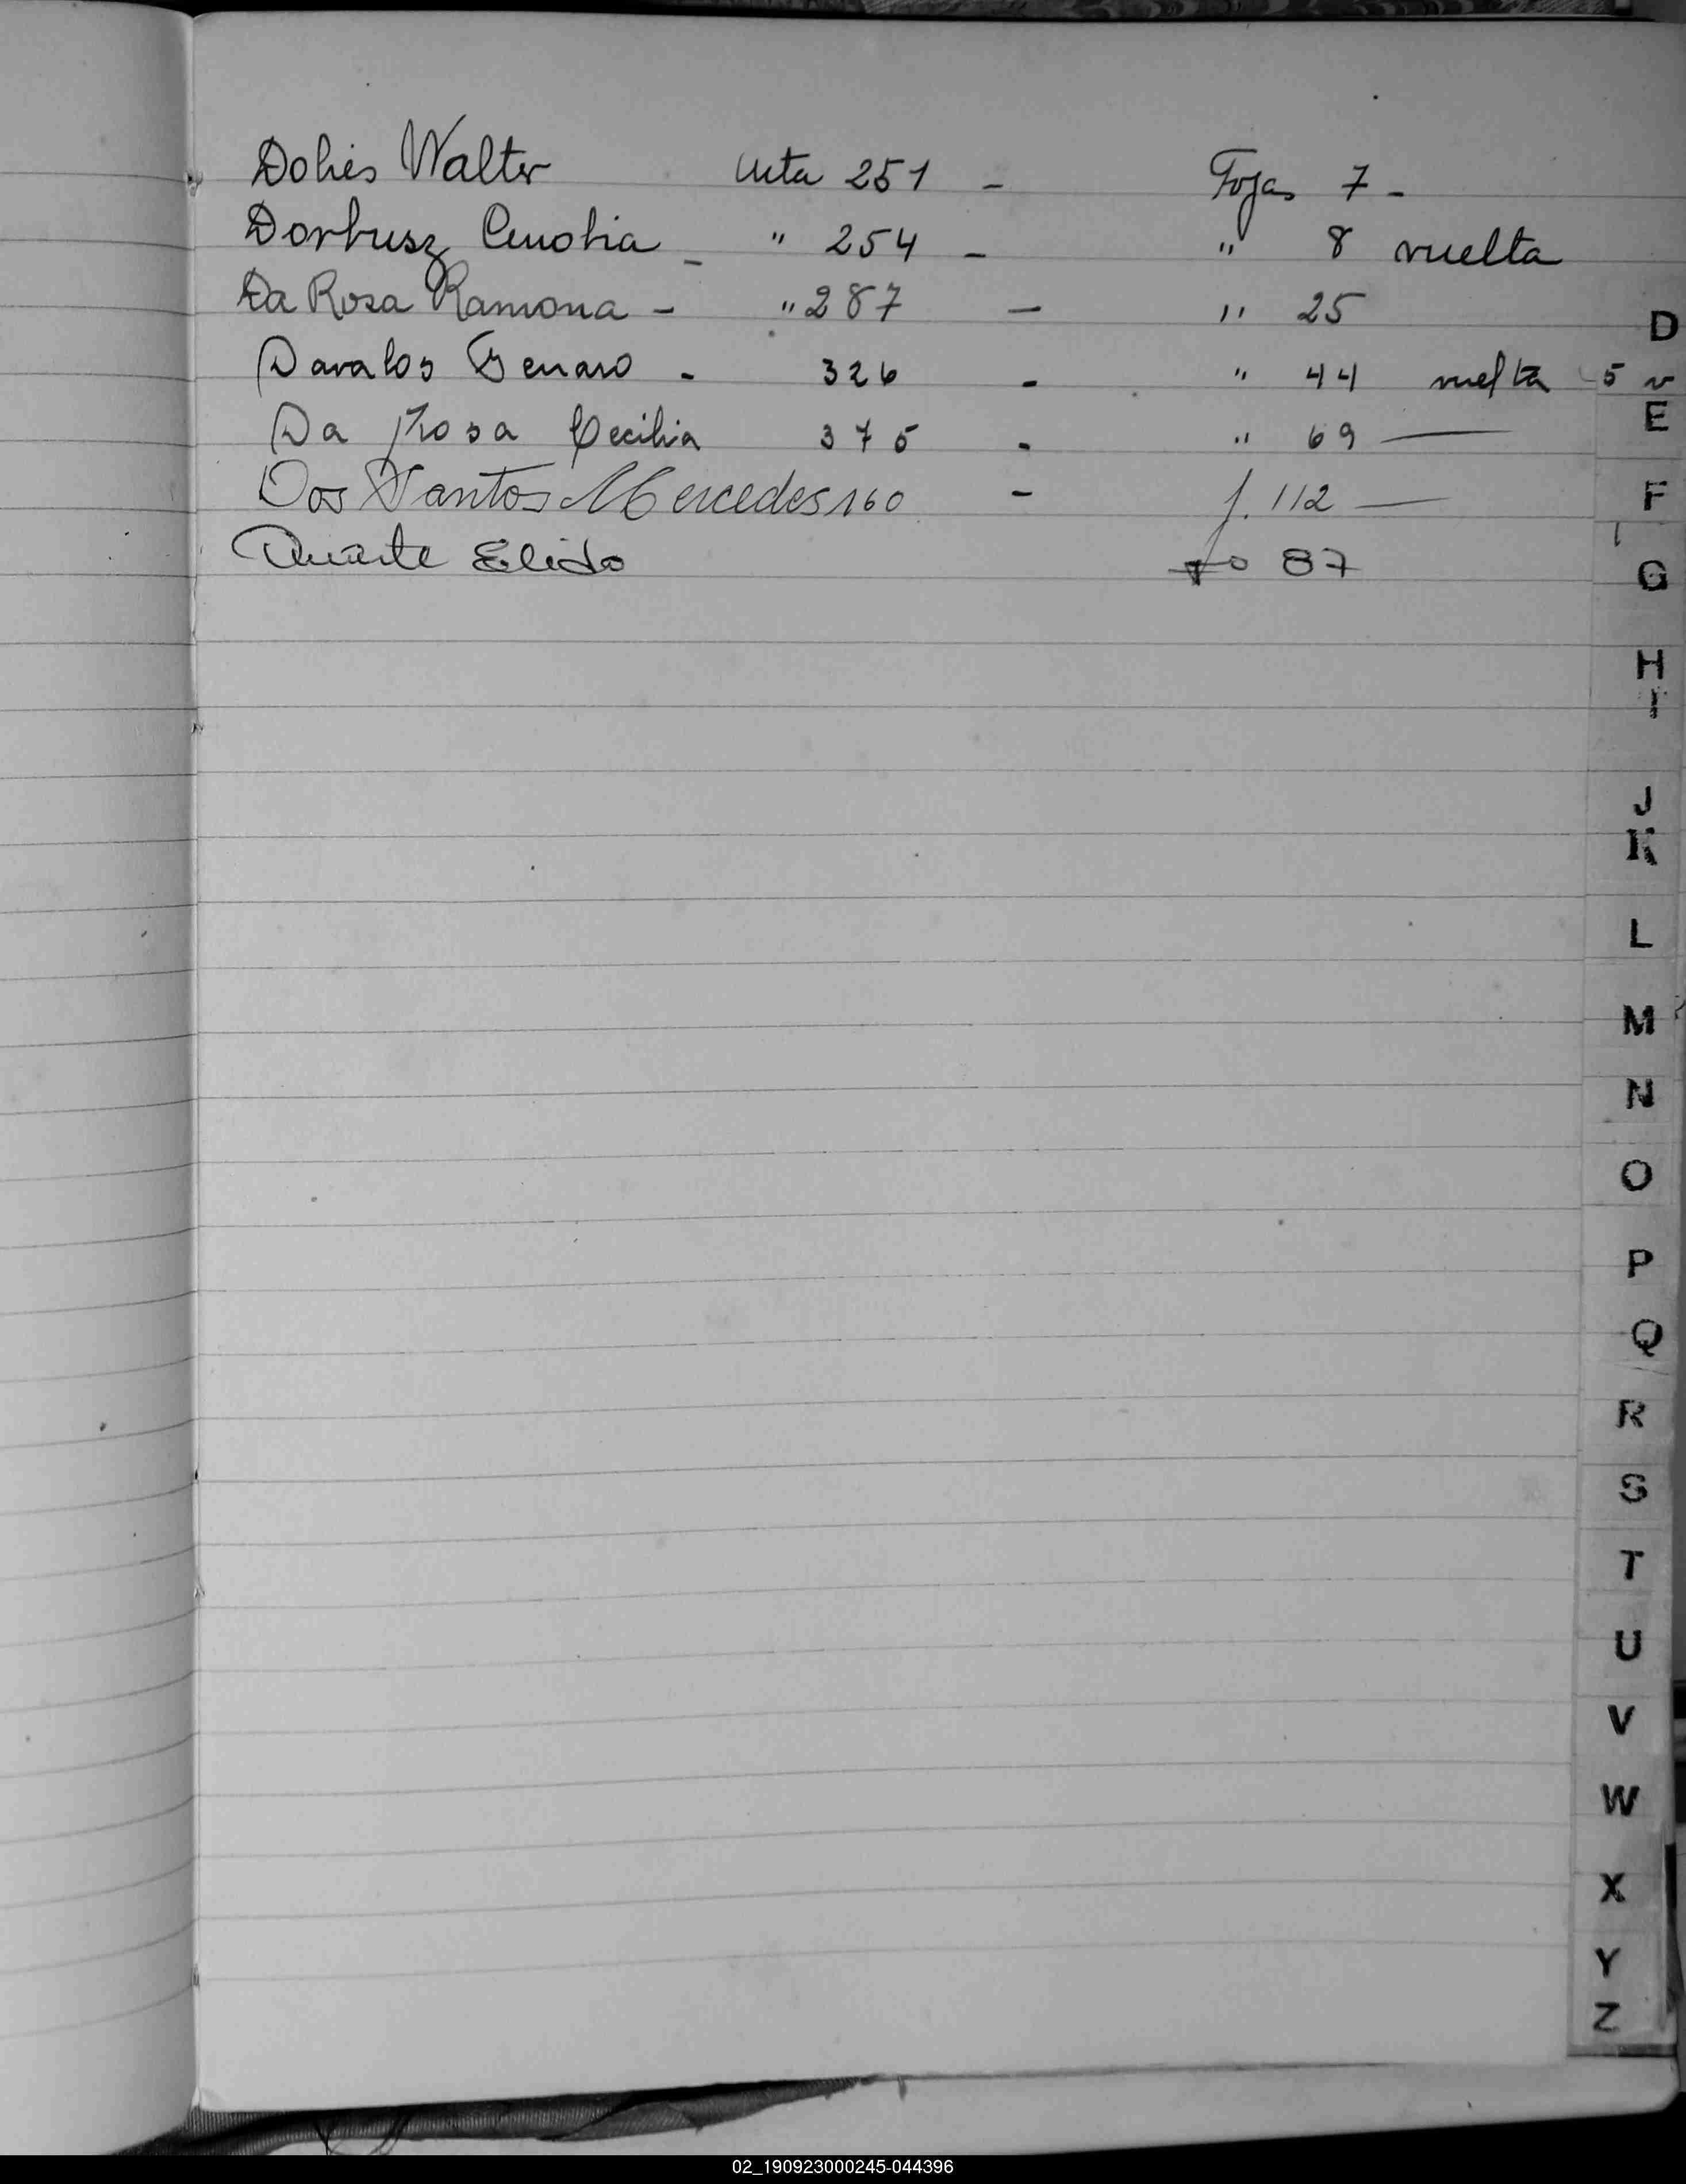 Dohis Walter Acta 251 - Fojas 7 -
Dorbusz Cenobia - " 254 - " 8 vuelta
Da Rosa Ramona - " 287 - " 25
Davalos Genaro - 326 - " 44 vuelta 5 v
Da Rosa Cecilia 375 - " 69 —
Dos Santos Mercedes 160 - f. 112 —
Duarte Elido Fo 87
D
E
F
G
H
I
J
K
L
M
N
O
P
Q
R
S
T
U
V
W
X
Y
Z
02_190923000245-044396